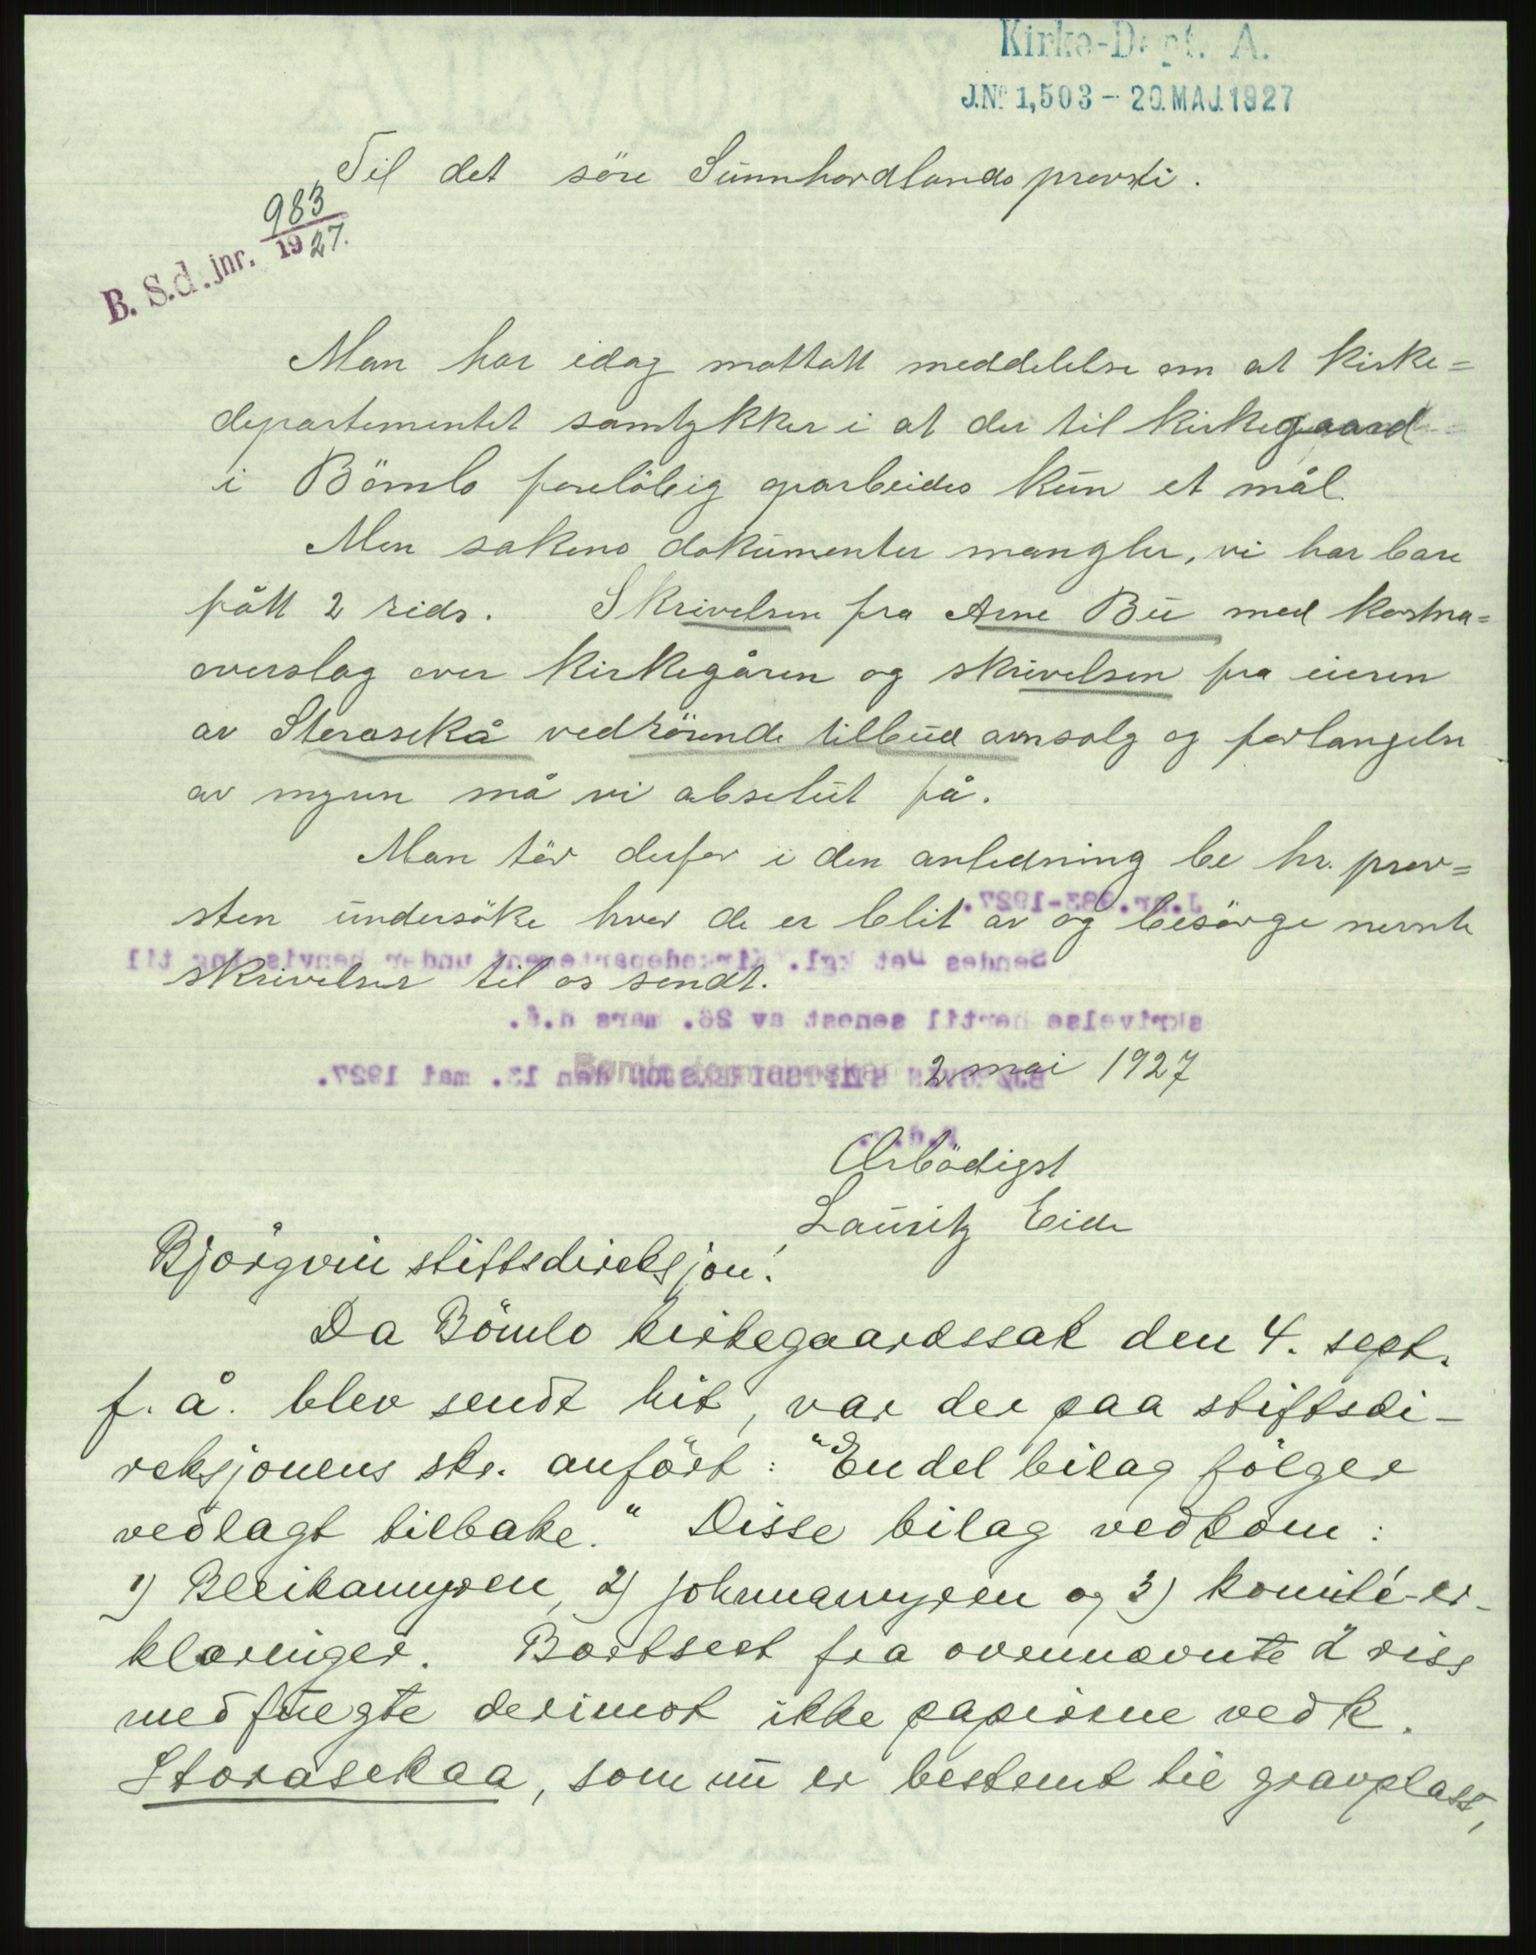 Kirke-Dept. A.
J.Nº 1,503 – 20.MAJ.1927
Til det söre Sunnhordlands provsti.
983
B. S.d. jnr. 1927.
Man har idag mottatt meddelelse om at kirke=
departementet samtykker i at der til kirkegaard
i Bömlo foreløbig oparbeides kun et mål.
Men sakens dokumenter mangler, vi har bare
fått 2 rids. Skrivelsen fra Arne Bu med kostna=
overslag over kirkegåren og skrivelsen fra eieren
av Storasekå vedrörende tilbud om salg og forlangelse
av myren må vi absolut få.
Man tör derfor i den anledning be hr. prov=
sten undersöke hvor de er blit av og besörge nevnte
J.nr. 983-1927.
Sendes Det kgl. Kirkedepartement under henvisning til
skrivelser til os sendt.
skrivelse hertil senest av 26. mars d.å.
2 mai 1927
BJØRGVIN STIFTSDIREKSJON den 13. mai 1927.
Ærbödigst
Lauritz Eide
Bjørgvin stiftsdireksjon!
Da Bömlo kirkegaardssak den 4. sept.
f. å. blev sendt hit, var der paa stiftsdi-
reksjonens skr. anfört: "En del bilag fölger
vedlagt tilbake." Disse bilag vedkom:
1) Bleikamyren, 2) Johnnamyren og 3) komité-er-
klæringer. Bortsett fra ovennævnte 2 riss
medfulgte derimot ikke papirene vedk.
Storasekaa, som nu er bestemt til gravplass,